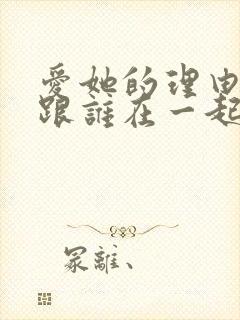 愛她的理由
跟誰在一起
冢離、